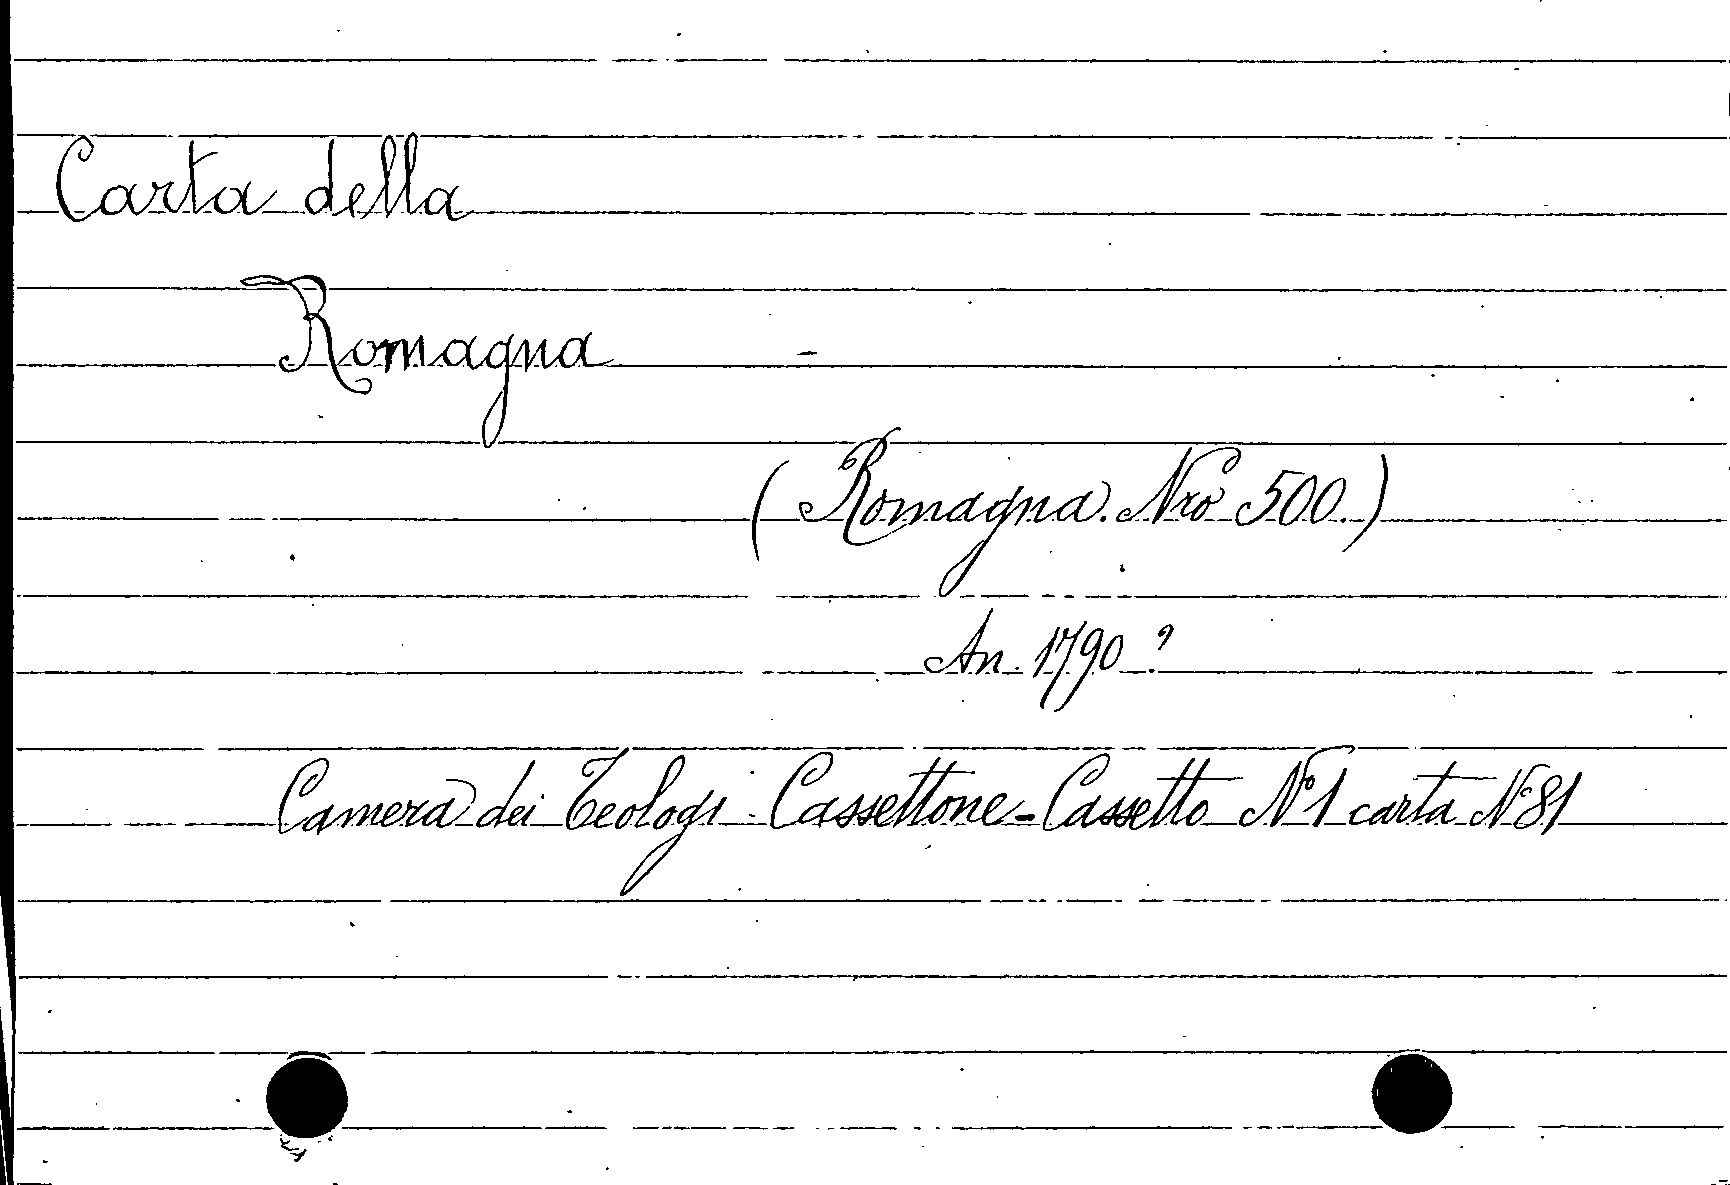 Carta della
Romagna -
( Romagna. Nro 500.)
An. 1790 ?
Camera dei Teologi - Cassettone - Cassetto N° 1 carta N° 81